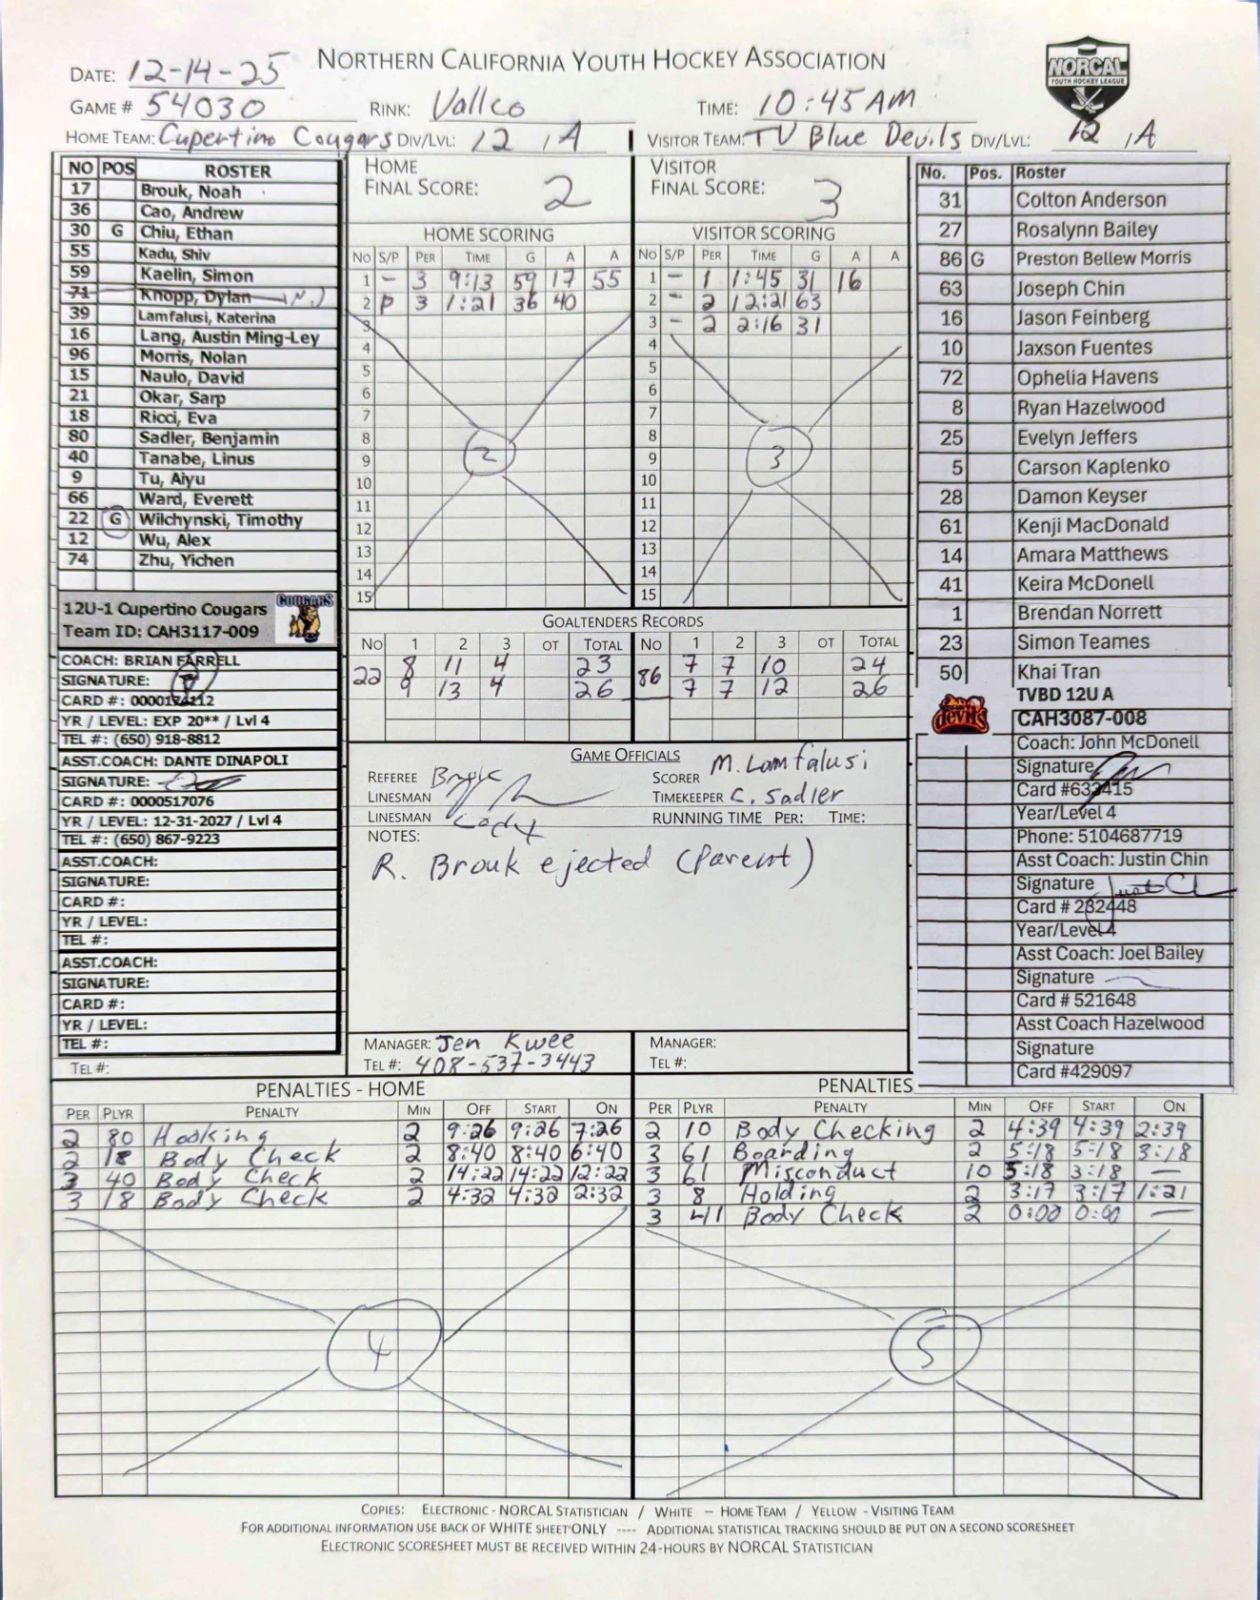 NORTHERN CALIFORNIA YOUTH HOCKEY ASSOCIATION
NORCAL
YOUTH HOCKEY LEAGUE
DATE: 12-14-25
GAME # 54030 RINK: Vallco TIME: 10:45 AM
HOME TEAM: Cupertino Cougars DIV/LVL: 12 , A VISITOR TEAM: TV Blue Devils DIV/LVL: 12 , A
NO POS ROSTER
17 Brouk, Noah
36 Cao, Andrew
30 G Chiu, Ethan
55 Kadu, Shiv
59 Kaelin, Simon
71 Knopp, Dylan
39 Lamfalusi, Katerina
16 Lang, Austin Ming-Ley
96 Morris, Nolan
15 Naulo, David
21 Okar, Sarp
18 Ricci, Eva
80 Sadler, Benjamin
40 Tanabe, Linus
9 Tu, Aiyu
66 Ward, Everett
22 G Wilchynski, Timothy
12 Wu, Alex
74 Zhu, Yichen
12U-1 Cupertino Cougars COUGARS
Team ID: CAH3117-009
COACH: BRIAN FARRELL
SIGNATURE:
CARD #:
YR / LEVEL: EXP 20** / Lvl 4
TEL #: (650) 918-8812
ASST.COACH: DANTE DINAPOLI
SIGNATURE:
CARD #: 0000517076
YR / LEVEL: 12-31-2027 / Lvl 4
TEL #: (650) 867-9223
ASST.COACH:
SIGNATURE:
CARD #:
YR / LEVEL:
TEL #:
ASST.COACH:
SIGNATURE:
CARD #:
YR / LEVEL:
TEL #:
TEL #:
HOME
FINAL SCORE: 2
HOME SCORING
NO S/P PER TIME G A A
1 - 3 9:13 59 17 55
2 P 3 1:21 36 40
3
4
5
6
7
8
9
10
11
12
13
14
15
2
VISITOR
FINAL SCORE: 3
VISITOR SCORING
NO S/P PER TIME G A A
1 - 1 1:45 31 16
2 - 2 12:21 63
3 - 2 2:16 31
4
5
6
7
8
9
10
11
12
13
14
15
3
GOALTENDERS RECORDS
NO 1 2 3 OT TOTAL NO 1 2 3 OT TOTAL
22 8 11 4 23 86 7 7 10 24
9 13 4 26 7 7 12 26
GAME OFFICIALS
REFEREE SCORER M. Lamfalusi
LINESMAN TIMEKEEPER C. Sadler
LINESMAN RUNNING TIME PER: TIME:
NOTES:
R. Brouk ejected (Parent)
MANAGER: Jen Kwee MANAGER:
TEL #: 408-537-3443 TEL #:
No. Pos. Roster
31 Colton Anderson
27 Rosalynn Bailey
86 G Preston Bellew Morris
63 Joseph Chin
16 Jason Feinberg
10 Jaxson Fuentes
72 Ophelia Havens
8 Ryan Hazelwood
25 Evelyn Jeffers
5 Carson Kaplenko
28 Damon Keyser
61 Kenji MacDonald
14 Amara Matthews
41 Keira McDonell
1 Brendan Norrett
23 Simon Teames
50 Khai Tran
devils TVBD 12U A
CAH3087-008
Coach: John McDonell
Signature
Card #633415
Year/Level 4
Phone: 5104687719
Asst Coach: Justin Chin
Signature
Card # 282448
Year/Level 4
Asst Coach: Joel Bailey
Signature
Card # 521648
Asst Coach Hazelwood
Signature
Card #429097
PENALTIES - HOME
PER PLYR PENALTY MIN OFF START ON
2 80 Hooking 2 9:26 9:26 7:26
2 18 Body Check 2 8:40 8:40 6:40
3 40 Body Check 2 14:22 14:22 12:22
3 18 Body Check 2 4:32 4:32 2:32
4
PENALTIES
PER PLYR PENALTY MIN OFF START ON
2 10 Body Checking 2 4:39 4:39 2:39
3 61 Boarding 2 5:18 5:18 3:18
3 61 Misconduct 10 5:18 3:18 —
3 8 Holding 2 3:17 3:17 1:21
3 41 Body Check 2 0:00 0:00 —
5
COPIES: ELECTRONIC - NORCAL STATISTICIAN / WHITE – HOME TEAM / YELLOW - VISITING TEAM
FOR ADDITIONAL INFORMATION USE BACK OF WHITE SHEET ONLY ---- ADDITIONAL STATISTICAL TRACKING SHOULD BE PUT ON A SECOND SCORESHEET
ELECTRONIC SCORESHEET MUST BE RECEIVED WITHIN 24-HOURS BY NORCAL STATISTICIAN